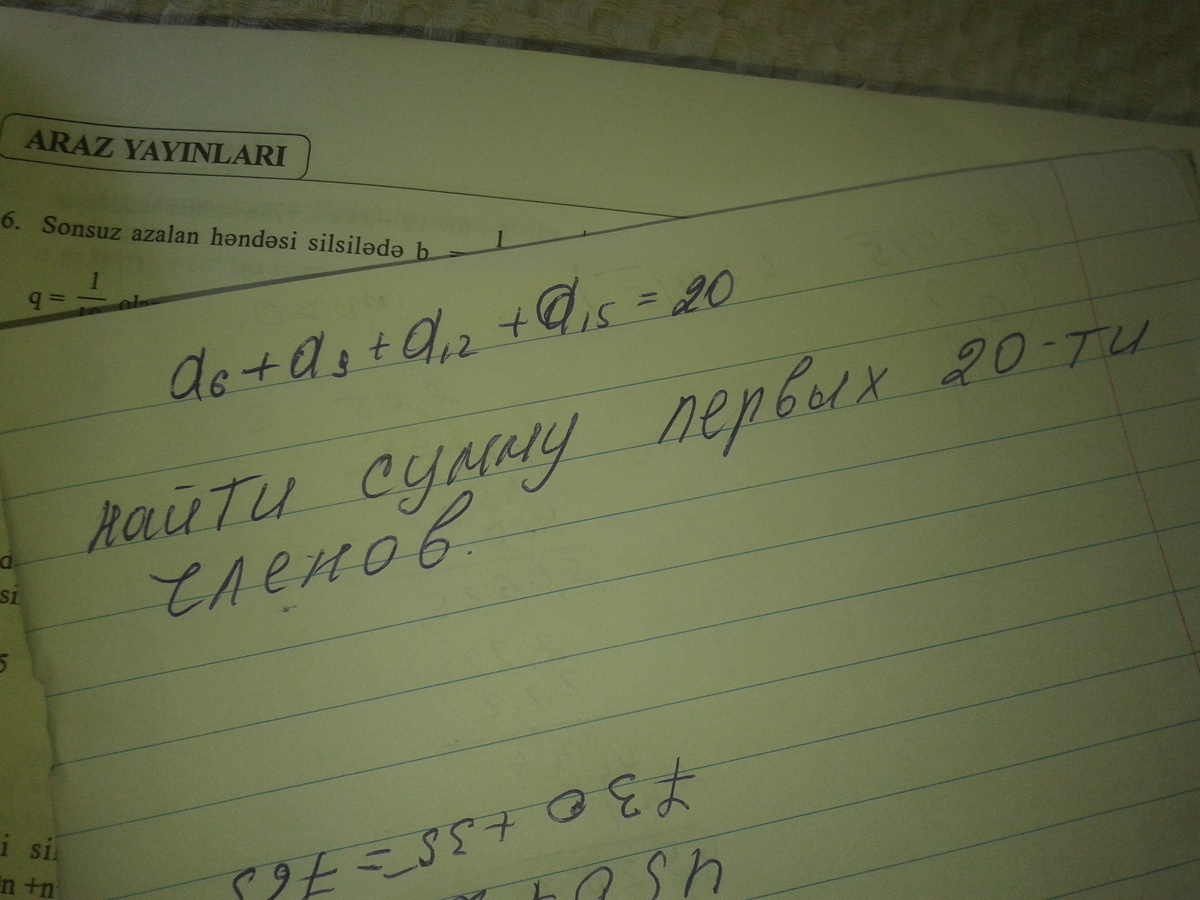 ARAZ YAYINLARI
6. Sonsuz azalan həndəsi silsilədə b = 1
q = 1
a₆ + a₉ + a₁₂ + a₁₅ = 20
найти сумму первых 20-ти
членов.
730 + 35 = 765